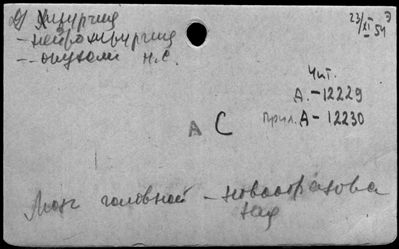 Хирургия
23/XI 54 Э
- нейрохирургия
- опухоли н.с.
Чит.
А.-12229
Прил. А-12230
А С
Мозг головной - новообразова
ния